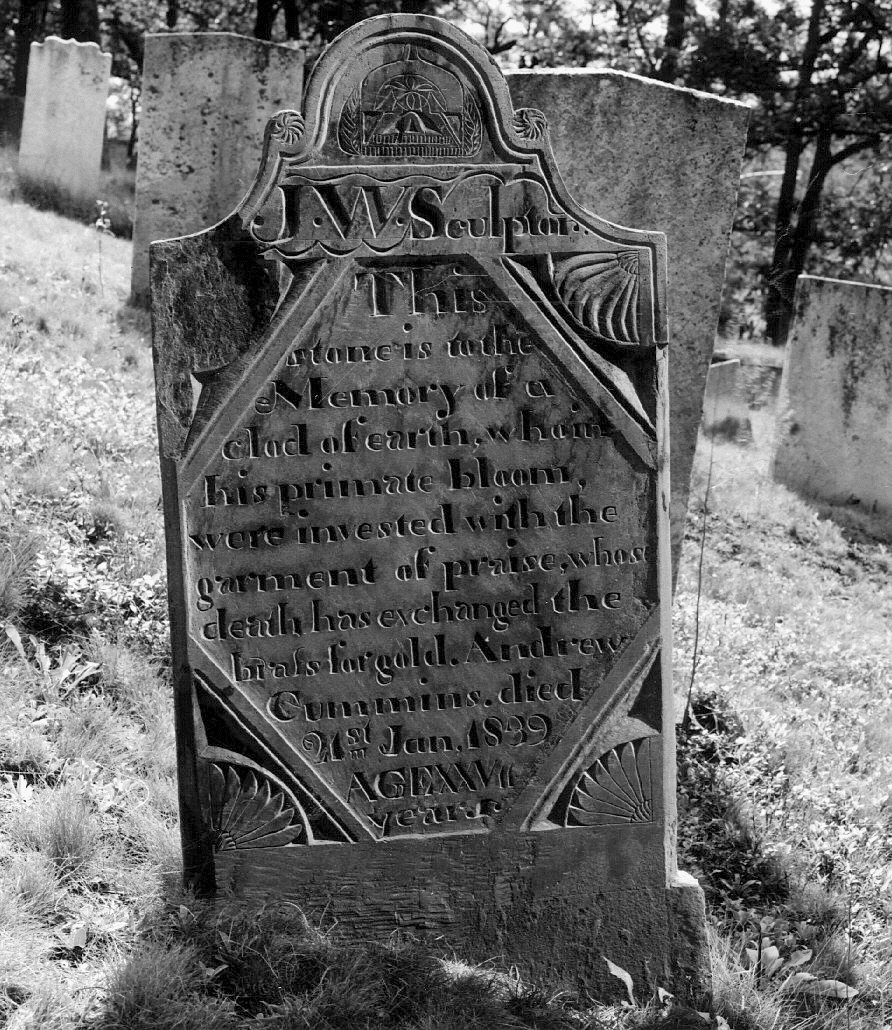 J.W. Sculptor.
This
stone is to the
Memory of a
clod of earth, whom
his primate bloom,
were invested with the
garment of praise, whose
death has exchanged the
brass for gold. Andrew
Cummins. died
21st Jan. 1839
AGE XXVII
years